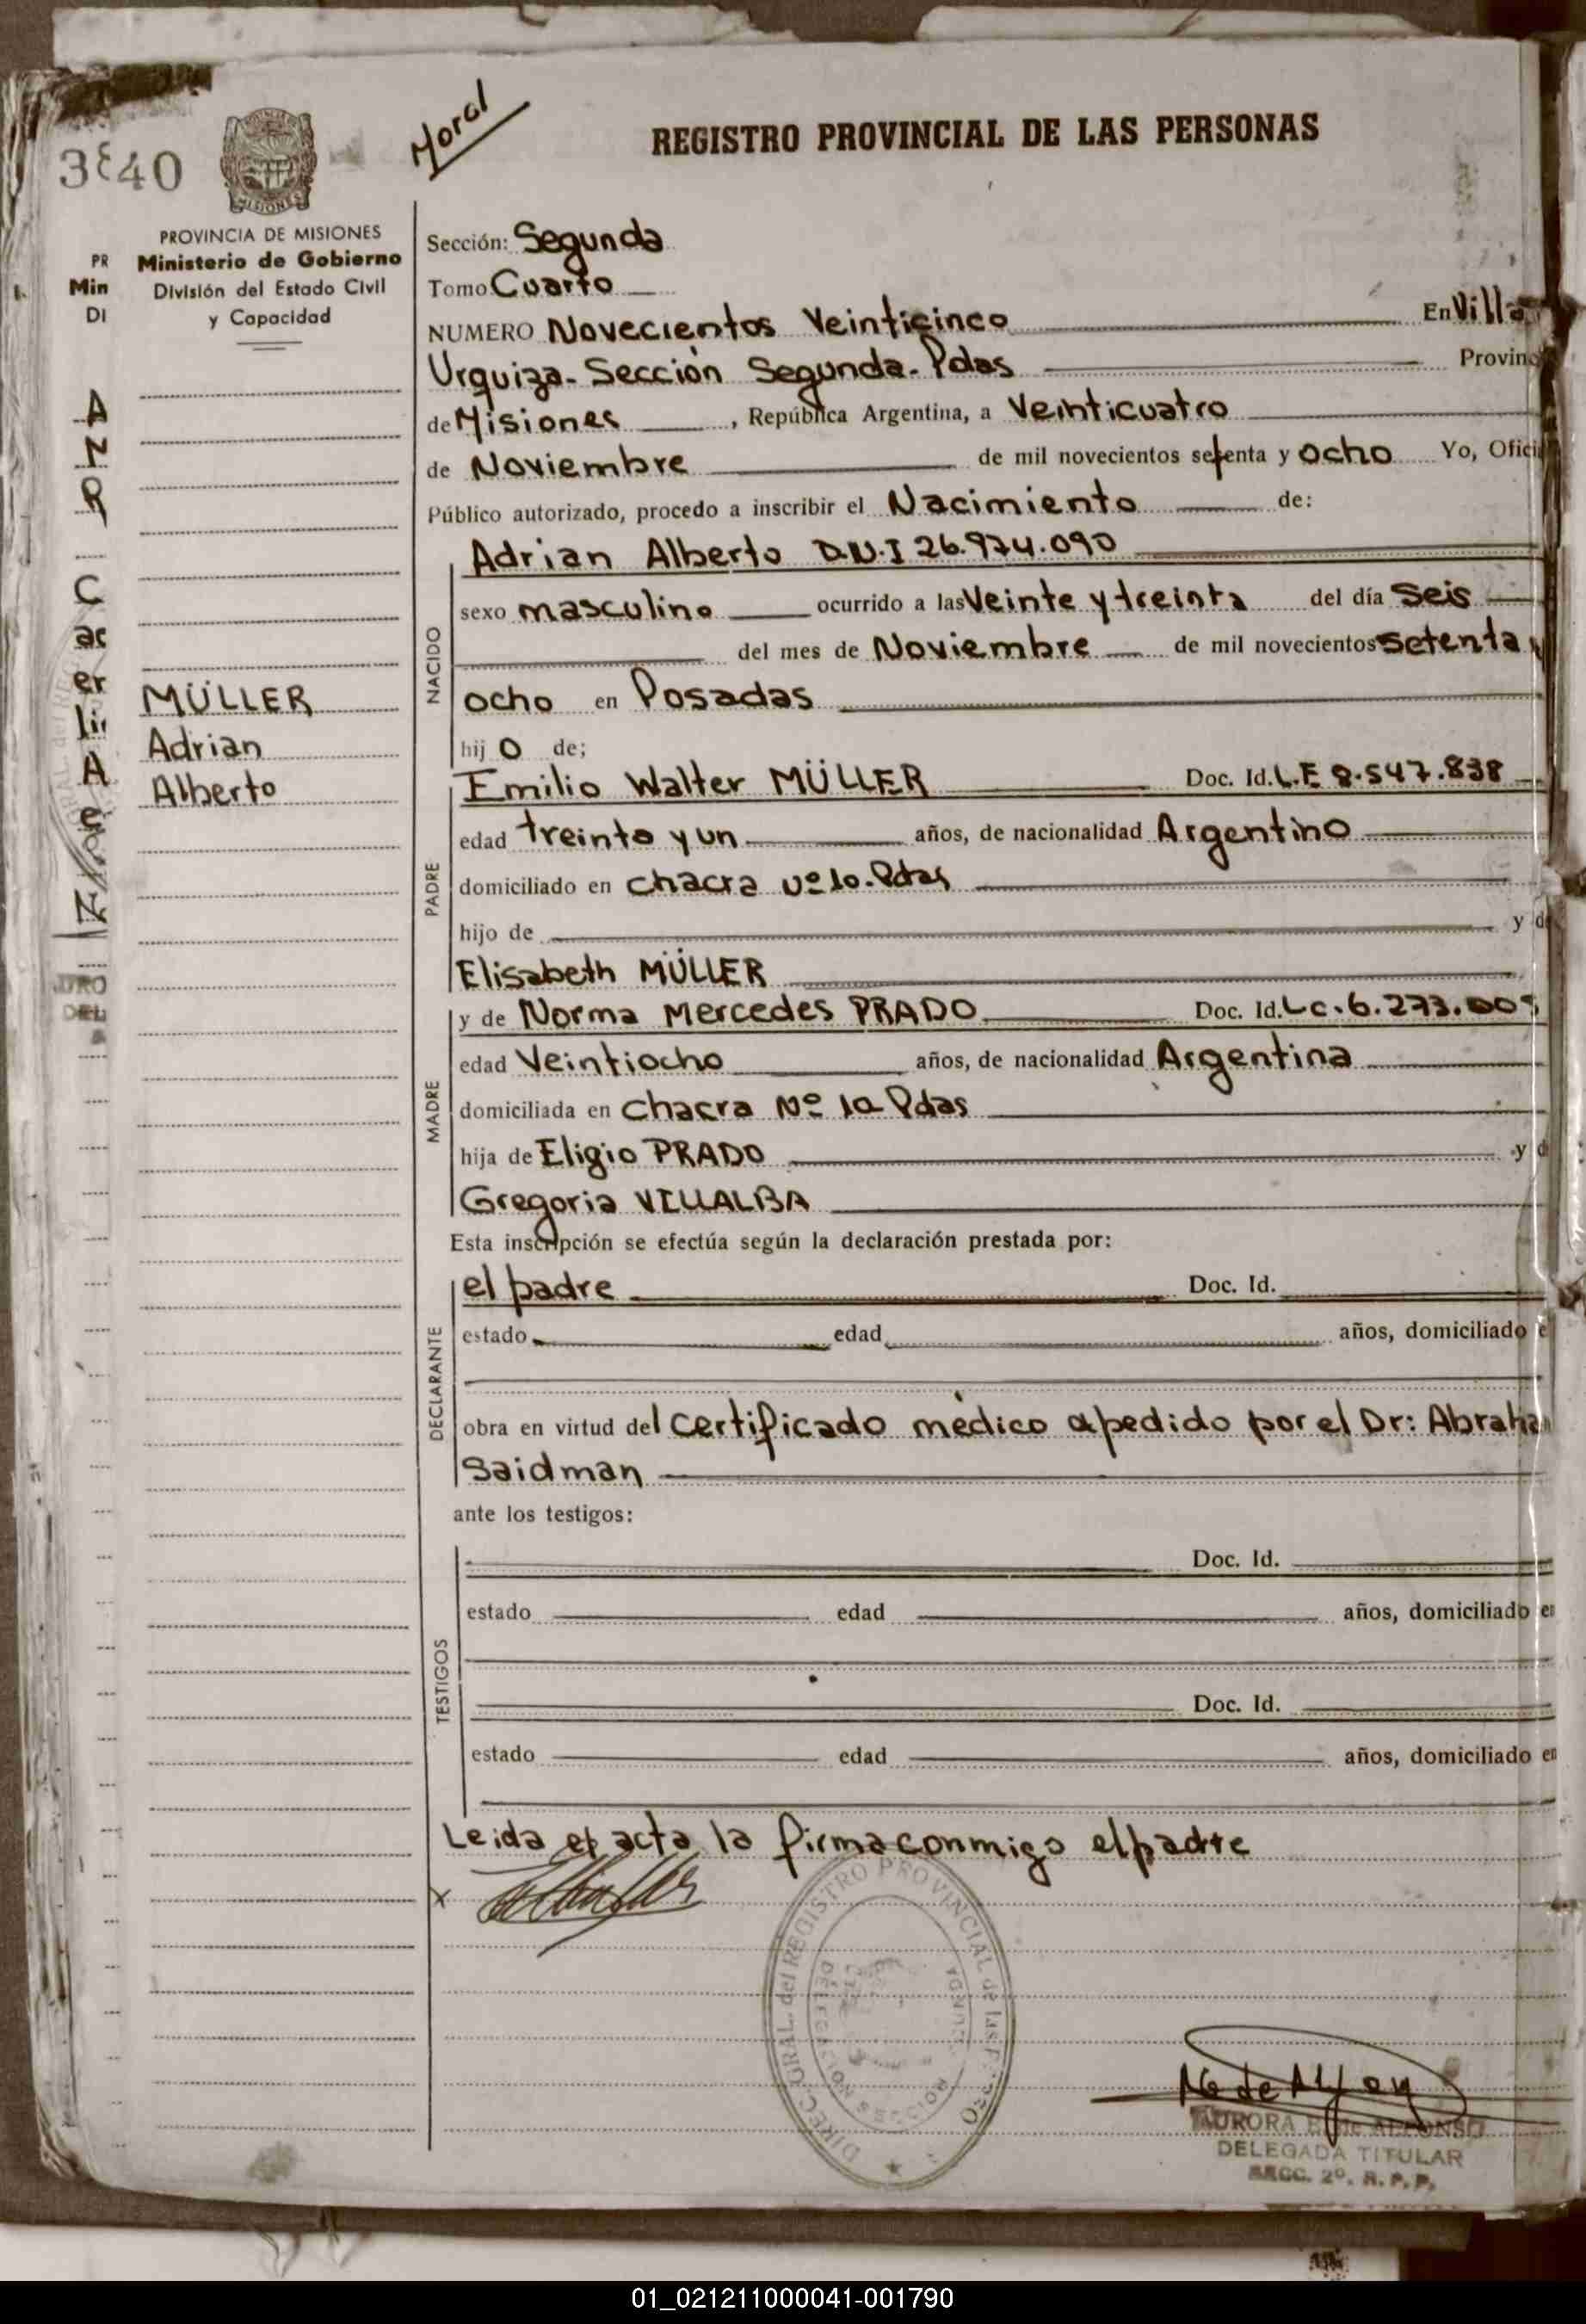 Moral
REGISTRO PROVINCIAL DE LAS PERSONAS
40
MISIONES
PROVINCIA DE MISIONES
Ministerio de Gobierno
División del Estado Civil
y Capacidad
PR
Min
DI
MÜLLER
Adrian
Alberto
Sección: Segunda
Tomo Cuarto
NUMERO Novecientos Veinticinco En Villa
Urquiza - Sección Segunda - Pdas Provinc
de Misiones, República Argentina, a Veinticuatro
de Noviembre de mil novecientos setenta y ocho Yo, Ofici
Público autorizado, procedo a inscribir el Nacimiento de:
NACIDO
Adrian Alberto D.N.I 26.974.090
sexo masculino ocurrido a las Veinte y treinta del día Seis
del mes de Noviembre de mil novecientos setenta y
ocho en Posadas
hijo de;
PADRE
Emilio Walter MÜLLER Doc. Id. L.E 8.547.838
edad treinta y un años, de nacionalidad Argentino
domiciliado en chacra nº 10. Pdas
hijo de y d
Elisabeth MÜLLER
MADRE
y de Norma Mercedes PRADO Doc. Id. Lc. 6.273.00
edad Veintiocho años, de nacionalidad Argentina
domiciliada en chacra Nº 10 Pdas
hija de Eligio PRADO y d
Gregoria VILLALBA
Esta inscripción se efectúa según la declaración prestada por:
DECLARANTE
el padre Doc. Id.
estado edad años, domiciliado e
obra en virtud del certificado médico expedido por el Dr: Abraha
Saidman
ante los testigos:
TESTIGOS
Doc. Id.
estado edad años, domiciliado en
Doc. Id.
estado edad años, domiciliado en
Leida el acta la firma conmigo el padre
x
DIREC. GRAL. del REGISTRO PROVINCIAL de las PERSO
AURORA B. de ALFONSO
DELEGADA TITULAR
SECC. 2º. R. P. P.
01_021211000041-001790